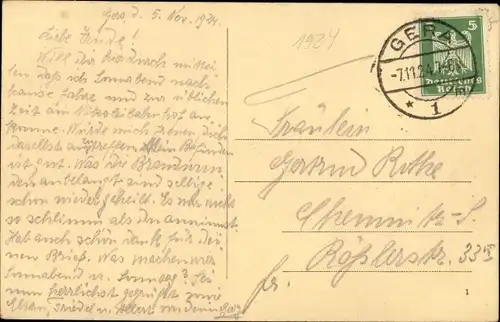 Gera, d. 5. Nov. 1924.
Liebe Trude!
Will dir hiernach mittei-
len daß ich Sonnabend nach
hause fahre und zur üblichen
Zeit am Nikolaibahnhof an-
komme. Würde mich freuen dich
daselbst anzutreffen. Mein Befinden
ist gut. Was die Brandwun-
den anbelangt sind selbige
schon wieder geheilt. Es war nicht
so schlimm als du annimmst.
Hab auch schön dank für dei-
nen Brief. Was machen wir
Sonnabend u. Sonntag? Sei
nun herzlichst gegrüßt sowie
Eltern, und von deinem
1924
GERA
-7.11.24
* 1
5
Deutsches
Reich
Fräulein
Gertrud Rothe
Chemnitz-S.
Rößlerstr. 33 II
1